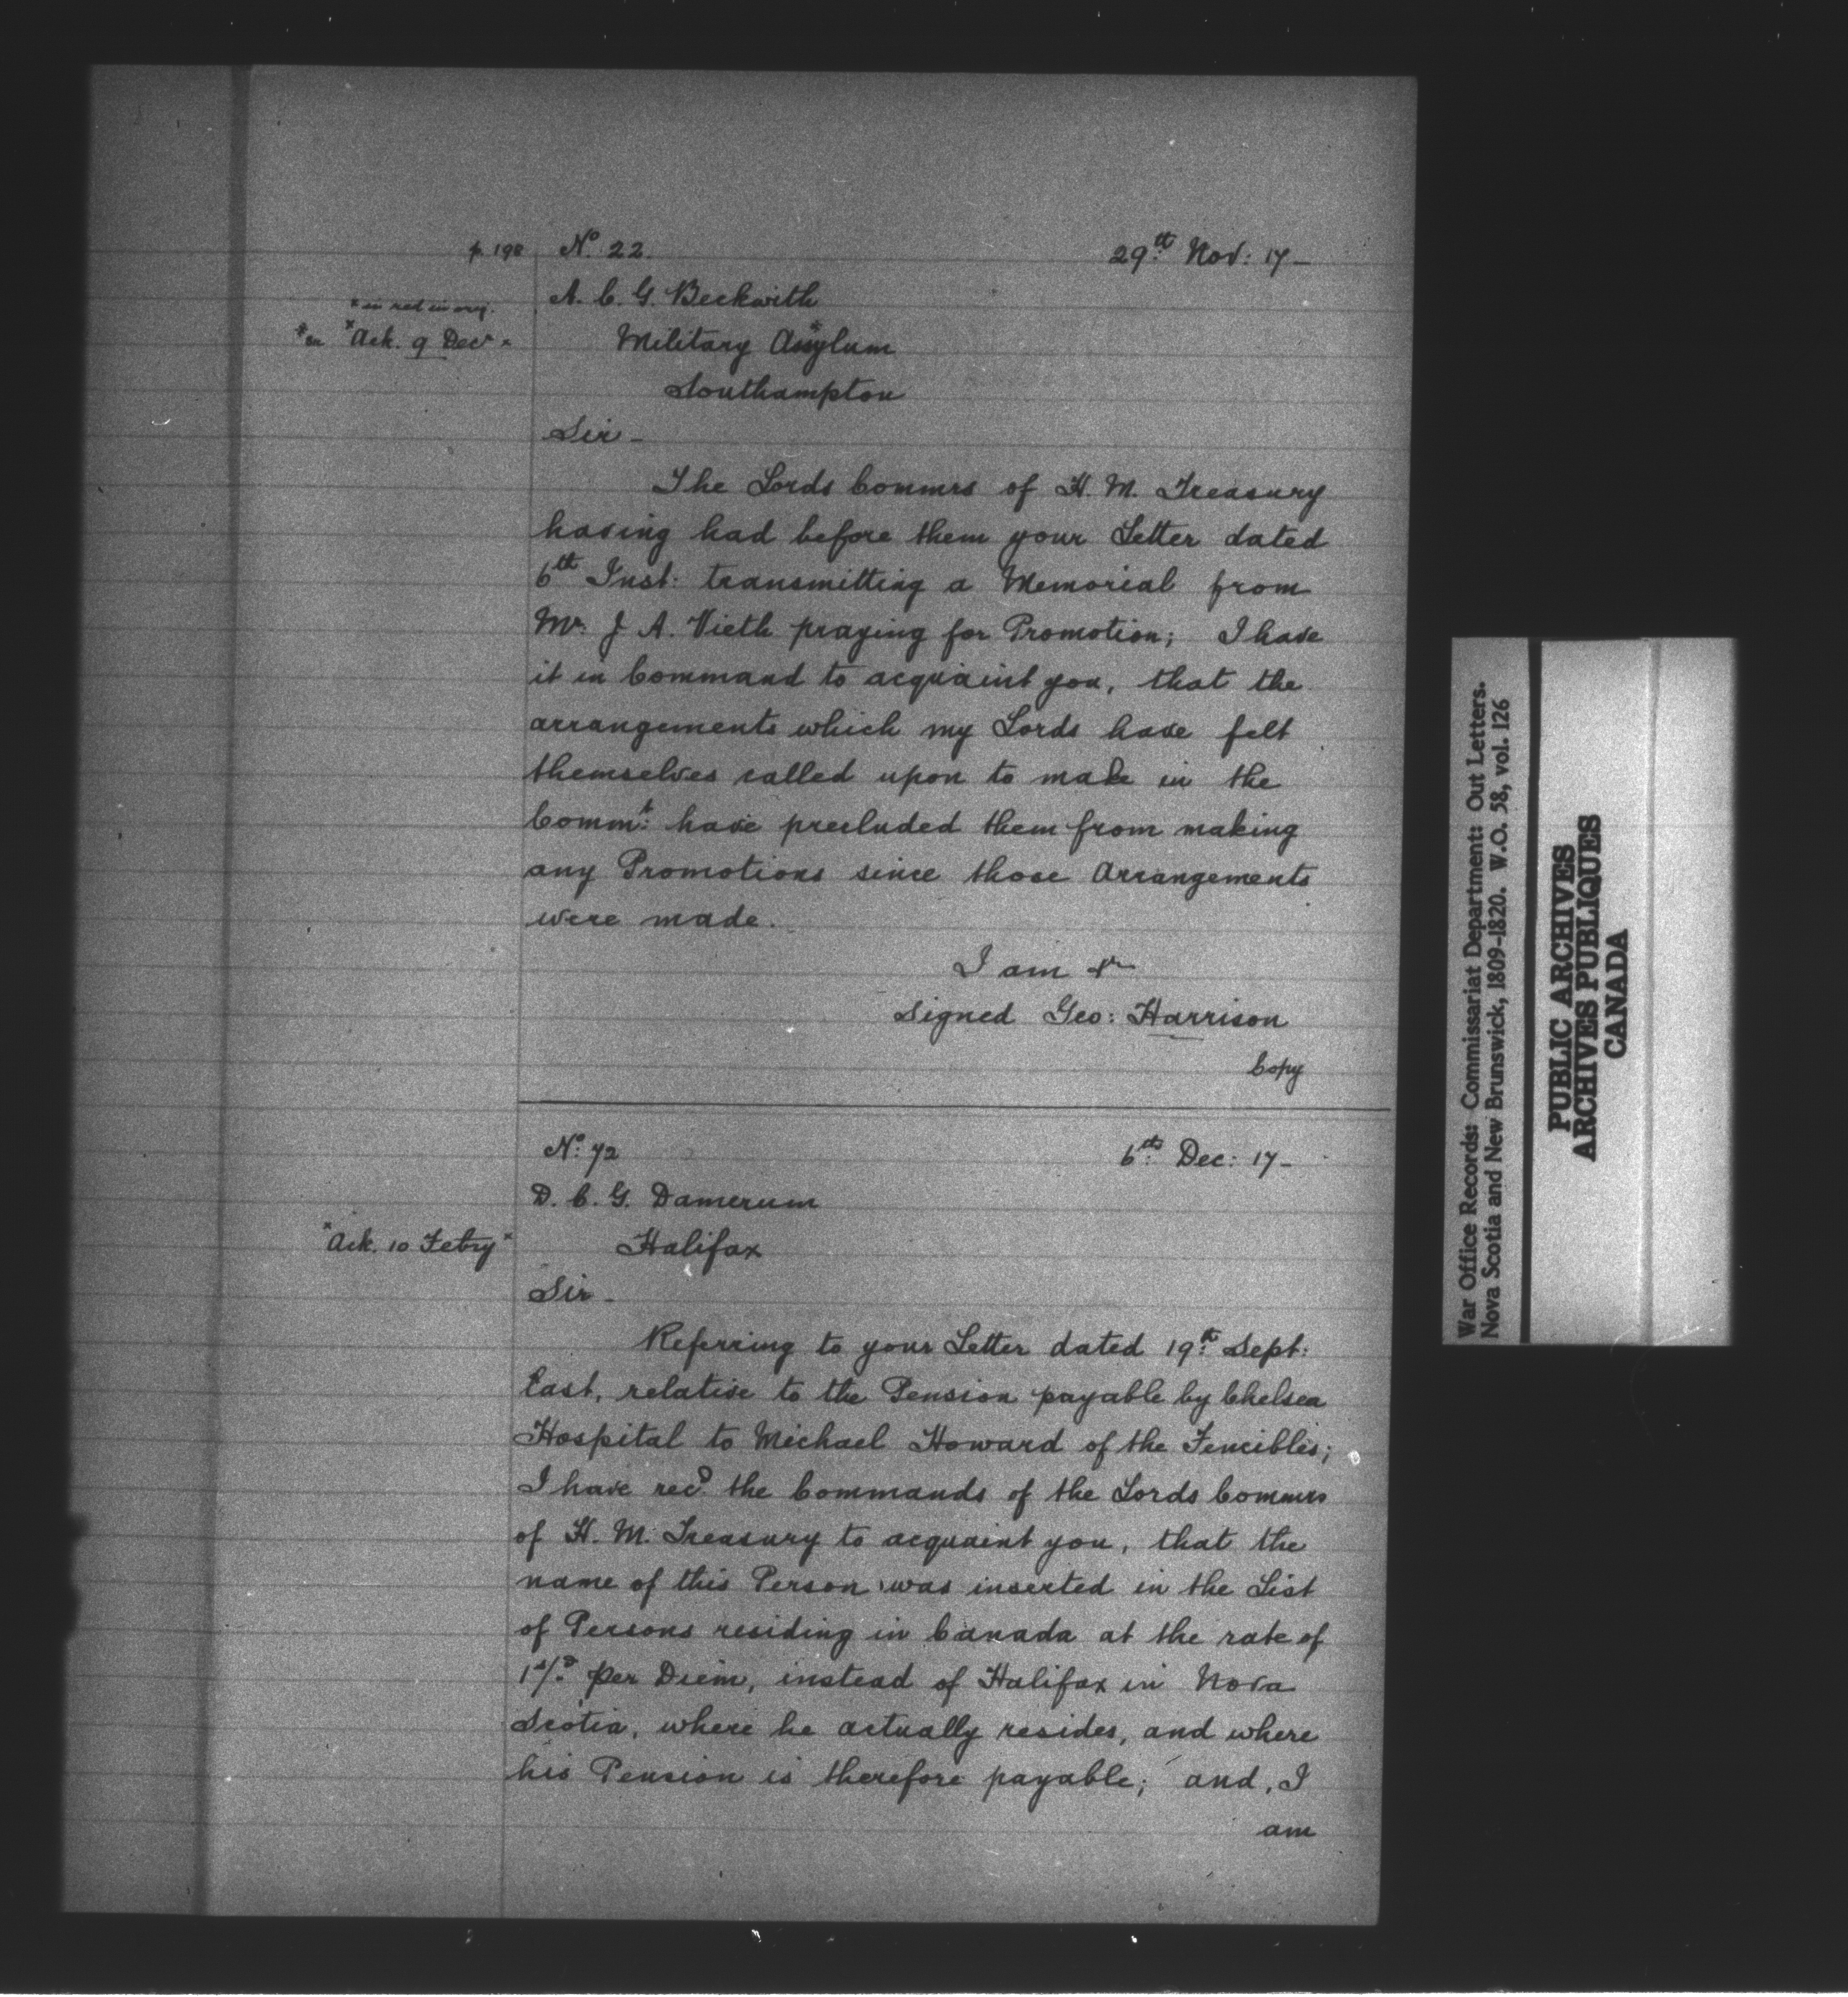 p. 198 No. 22. 29th Nov: 17-
* in red in orig. A. C. G. Beckwith
*Ack. 9 Decr* Military Asylum
Southampton
Sir-
The Lords Commrs of H. M. Treasury
having had before them your Letter dated
6th Inst: transmitting a Memorial from
Mr. J A. Vieth praying for Promotion; I have
it in Command to acquaint you, that the
arrangements which my Lords have felt
themselves called upon to make in the
Commt: have precluded them from making
any Promotions since those Arrangements
were made.
I am &c
Signed Geo: Harrison
Copy
No: 72 6th: Dec: 17-
D. C. G. Damerum
*Ack. 10 Febry* Halifax
Sir-
Referring to your Letter dated 19th: Sept:
last, relative to the Pension payable by Chelsea
Hospital to Michael Howard of the Fencibles;
I have recd. the Commands of the Lords Commrs
of H. M. Treasury to acquaint you, that the
name of this Person was inserted in the List
of Persons residing in Canada at the rate of
1s/.d per Diem, instead of Halifax in Nova
Scotia, where he actually resides, and where
his Pension is therefore payable; and, I
am
War Office Records: Commissariat Department: Out Letters.
Nova Scotia and New Brunswick, 1809-1820. W.O. 58, vol. 126
PUBLIC ARCHIVES
ARCHIVES PUBLIQUES
CANADA